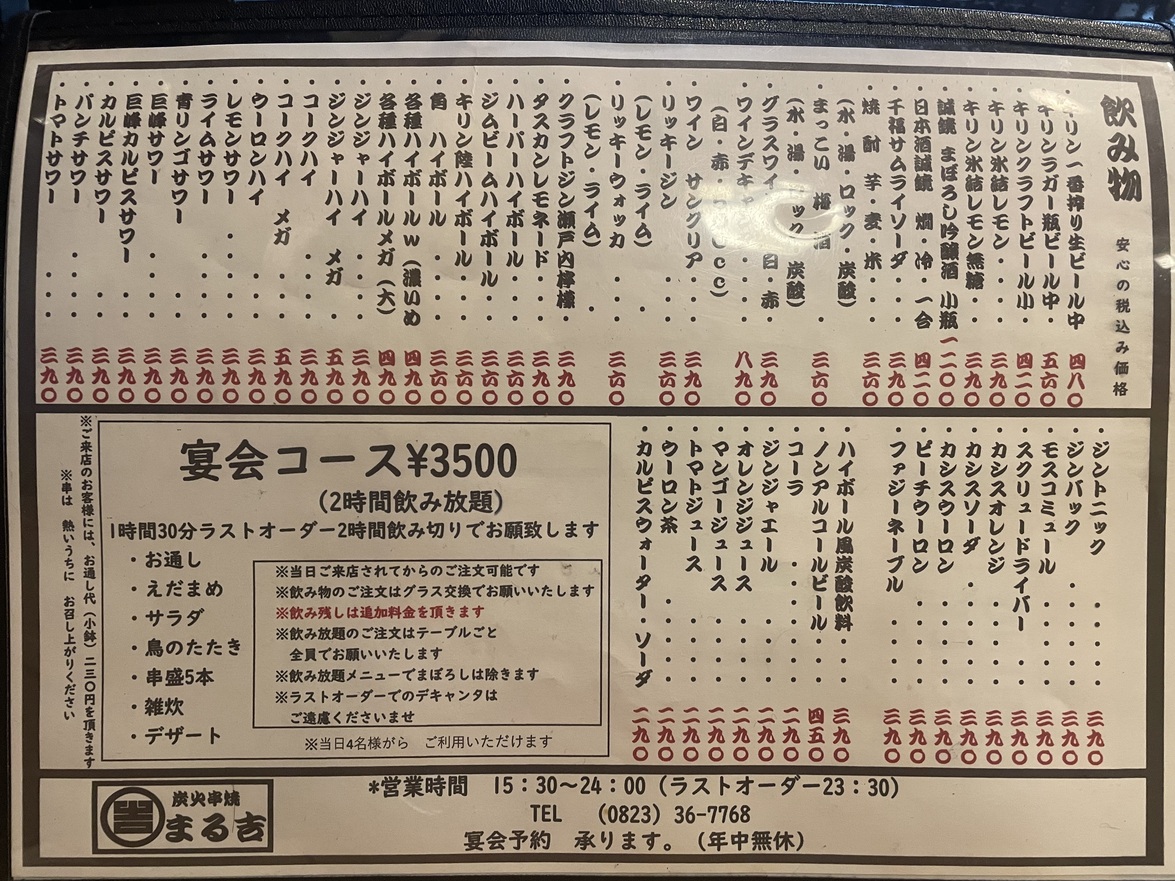 飲み物
安心の税込み価格
・キリン一番搾り生ビール中 四八〇
・キリンラガー瓶ビール中 五六〇
・キリンクラフトビール小・ 四二〇
・キリン氷結レモン・・・ 三九〇
・キリン氷結レモン無糖・ 三九〇
・誠鏡 まぼろし吟醸酒 小瓶 一二〇〇
・日本酒誠鏡 燗・冷・一合 四二〇
・千福サムライソーダ・・ 三九〇
・焼酎 芋・麦・米・・・ 三六〇
(水・湯・ロック・炭酸)
・まっこい 梅酒・ 三六〇
(水・湯・ロック・炭酸)
・グラスワイン 白・赤 三九〇
・ワインデキャ 八九〇
(白・赤・
・ワイン サングリア・・ 三九〇
・リッキージン・・・ 三六〇
(レモン・ライム)
・リッキーウォッカ・・・ 三六〇
(レモン・ライム)
・クラフトジン瀬戸内檸檬・ 三九〇
・タスカンレモネード・・ 三九〇
・ハーパーハイボール・・ 三六〇
・ジムビームハイボール・ 三六〇
・キリン陸ハイボール・・ 三六〇
・角 ハイボール・・・ 三六〇
・各種ハイボールw(濃いめ 四九〇
・各種ハイボールメガ(大) 四九〇
・ジンジャーハイ・・・ 三九〇
・ジンジャーハイ メガ・ 五九〇
・コークハイ・・・・ 三九〇
・コークハイ メガ・・・ 五九〇
・ウーロンハイ・・・ 三九〇
・レモンサワー・・・・ 三九〇
・ライムサワー・・・・ 三九〇
・青リンゴサワー・・・ 三九〇
・巨峰サワー・・・・ 三九〇
・巨峰カルピスサワー・・ 三九〇
・カルピスサワー・・・ 三九〇
・パンチサワー・・・・ 三九〇
・トマトサワー・・・ 三九〇
・ジントニック・・・・ 三九〇
・ジンバック・・・・・ 三九〇
・モスコミュール・・・・ 三九〇
・スクリュードライバー・・ 三九〇
・カシスオレンジ・・・・ 三九〇
・カシスソーダ・・・・・ 三九〇
・カシスウーロン・・・・ 三九〇
・ピーチウーロン・・・・ 三九〇
・ファジーネーブル・・・ 三九〇
・ハイボール風炭酸飲料・・ 三九〇
・ノンアルコールビール・・ 四五〇
・コーラ・・・・・ 二九〇
・ジンジャエール・・・・ 二九〇
・オレンジジュース・・・ 二九〇
・マンゴージュース・・・ 二九〇
・トマトジュース・・・・ 二九〇
・ウーロン茶・・・・ 二九〇
・カルピスウォーター・ソーダ 二九〇
宴会コース¥3500
(2時間飲み放題)
1時間30分ラストオーダー2時間飲み切りでお願致します
・お通し
・えだまめ
・サラダ
・鳥のたたき
・串盛5本
・雑炊
・デザート
※当日ご来店されてからのご注文可能です
※飲み物のご注文はグラス交換でお願いいたします
※飲み残しは追加料金を頂きます
※飲み放題のご注文はテーブルごと
全員でお願いいたします
※飲み放題メニューでまぼろしは除きます
※ラストオーダーでのデキャンタは
ご遠慮くださいませ
※当日4名様から ご利用いただけます
※ご来店のお客様には、お通し代(小鉢)二三〇円を頂きます
※串は 熱いうちに お召し上がりください
*営業時間 15:30〜24:00(ラストオーダー23:30)
TEL (0823) 36-7768
宴会予約 承ります。(年中無休)
炭火串焼
まる吉